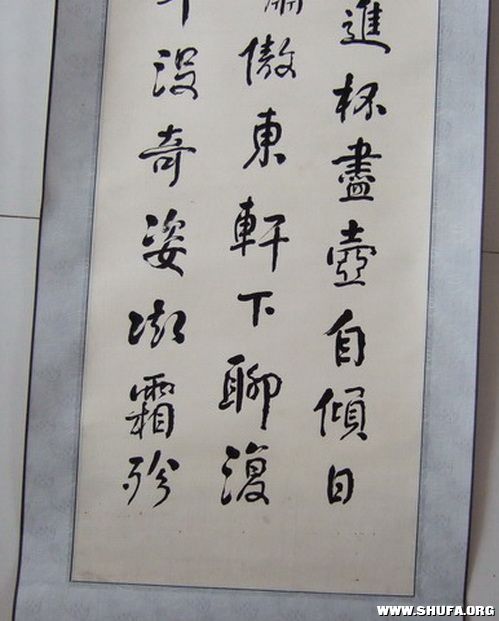 進杯盡壺自傾日
傲東軒下聊復
没奇姿凝霜殄
WWW.SHUFA.ORG